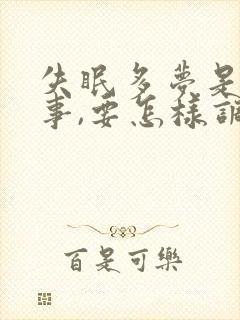 失眠多夢是
事,要怎樣調
百是可樂